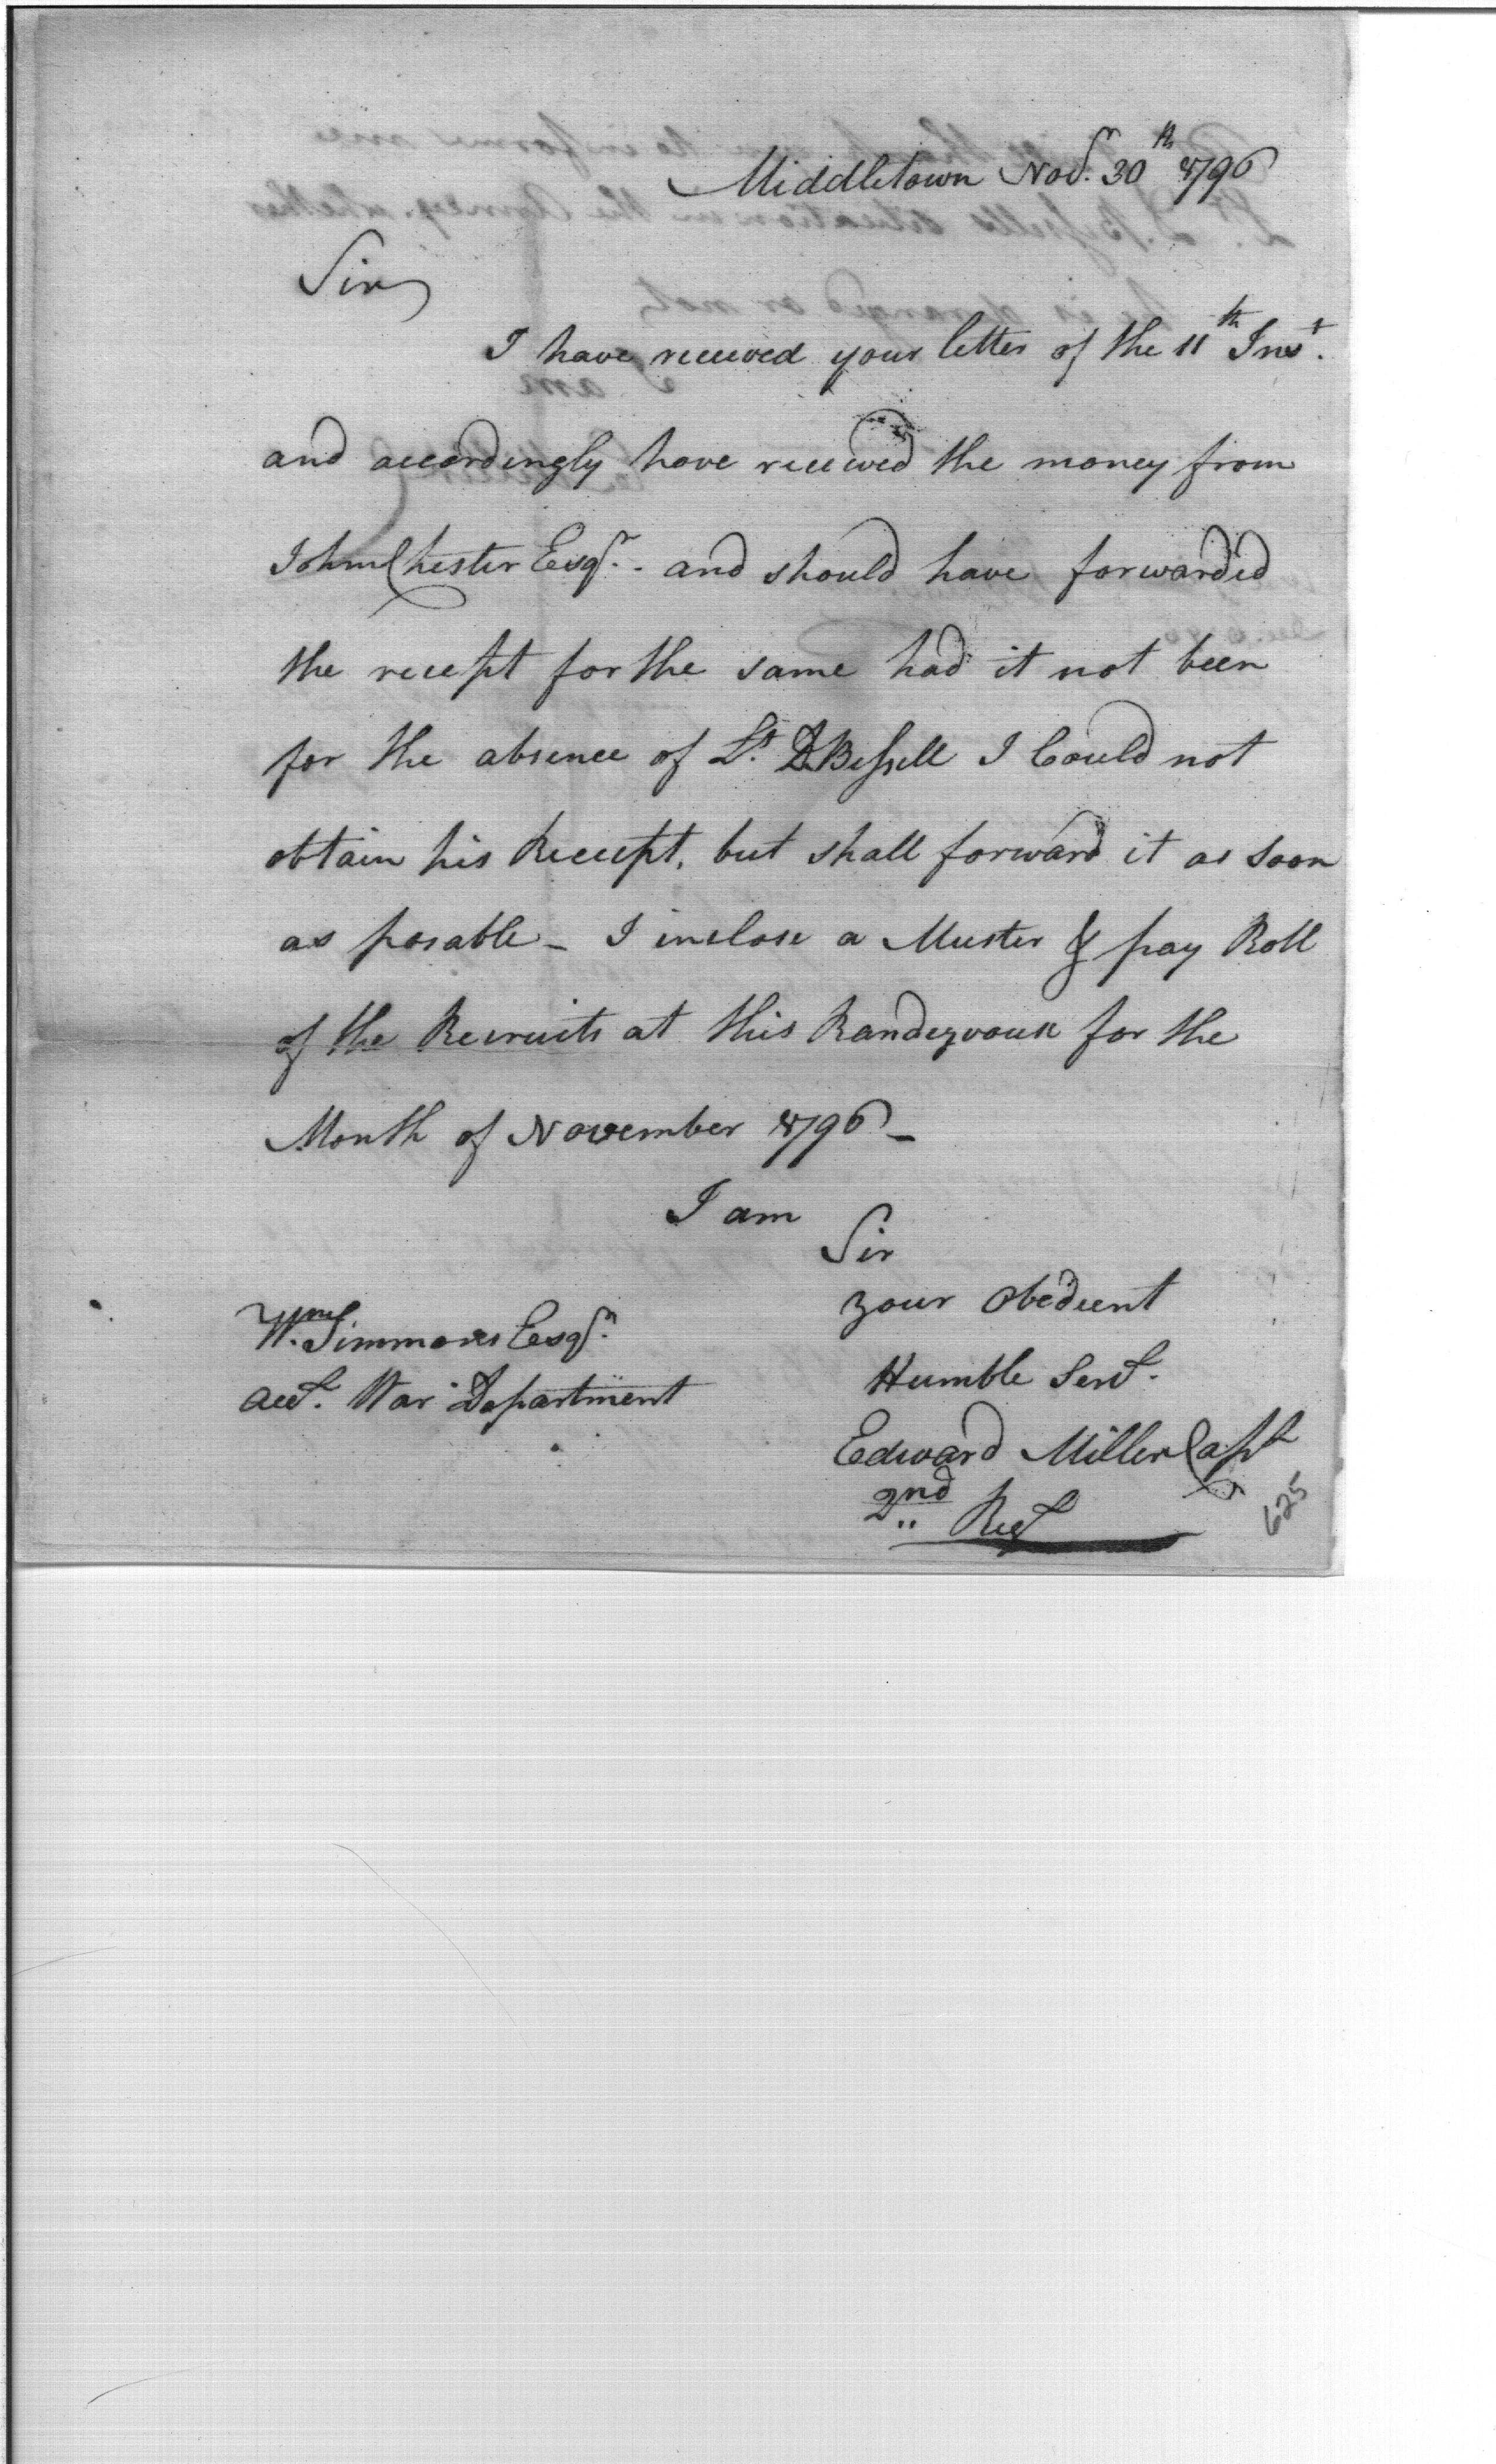 Middletown Nov.r 30th 1796
Sir
I have received your letter of the 11th Inst.
and accordingly have received the money from
John Chester Esqr. and should have forwarded
the recept for the same had it not been
for the absence of Lt. D Bessell I Could not
obtain his Receept, but shall forward it as soon
as posable - I inclose a Muster & pay Roll
of the Recruits at this Randezvous for the
Month of November 1796 -
I am
Sir
your Obedient
Humble Servt.
Wm. Simmons Esqr.
Acct. War Department
Edward Miller Capt
2nd Regt
625